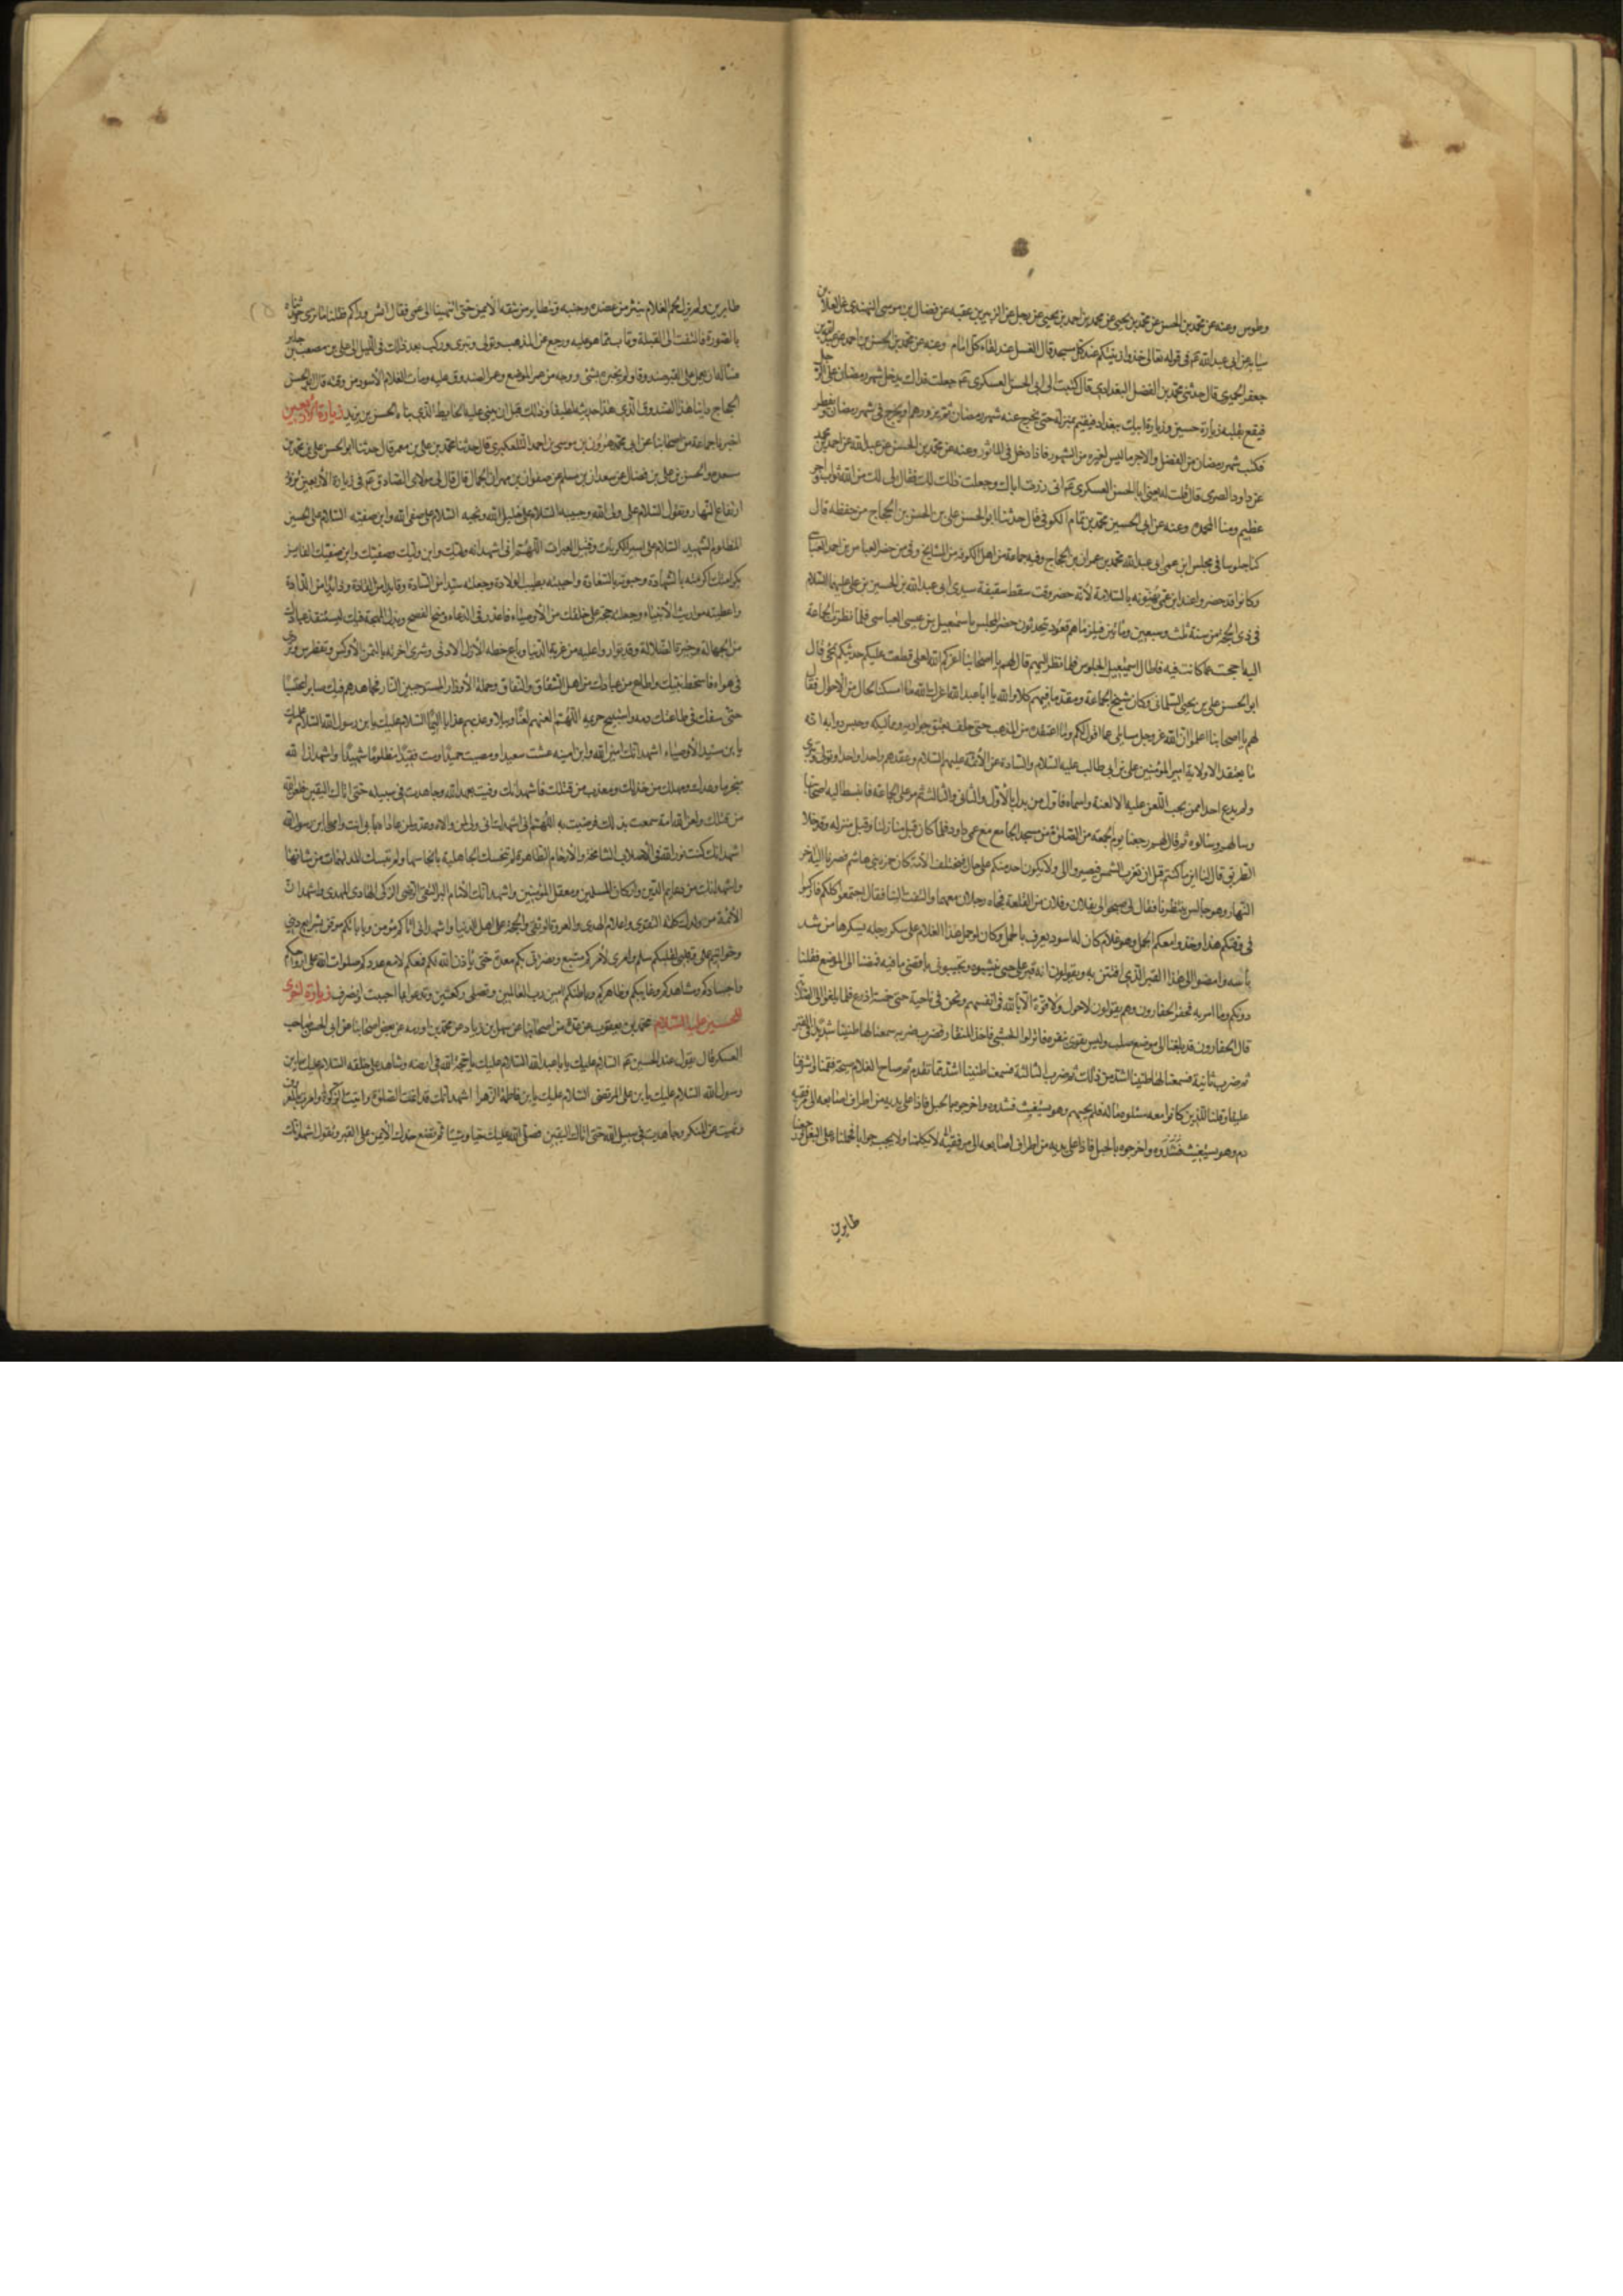 وطوس وعنه عن محمد بن الحسن عن محمد بن يحيى عن محمد بن احمد بن يحيى عن رجل عن الزبير بن عقبه عن فضال بن موسى النهدي عن العلا بن
سيابه عن ابي عبد الله عم في قوله تعالى خذوا زينتكم عند كل مسجد قال الغسل عند لقاء كل امام وعنه عن محمد بن الحسن بن احمد عن عبد الله بن
جعفر الحميري قال حدثني محمد بن الفضل البغدادي قال كتبت الى ابي الحسن العسكري عم جعلت فداك يدخل شهر رمضان على الرجل
فيقع بقلبه زيارة حسين وزيارة ابيك ببغداد فيقيم بمنزله حتى يخرج عنه شهر رمضان ثم يزورهم او يخرج في شهر رمضان ويفطر
فكتب شهر رمضان من الفضل والاجر ما ليس لغيره من الشهور فاذا دخل فهو الماثور وعنه عن محمد بن الحسن عن عبد الله عن احمد بن محمد
عن داود الصرمي قال قلت له يعني ابا الحسن العسكري عم اني زرت اباك وجعلت ذلك لك فقال لي لك من الله ثواب واجر
عظيم ومنا المحمدة وعنه عن ابي الحسين محمد بن تمام الكوفي قال حدثنا ابو الحسن علي بن الحسن بن الحجاج من حفظه قال
كنا جلوسا في مجلس ابن عمي ابي عبد الله محمد بن عمران بن الحجاج وفيه جماعة من اهل الكوفة من المشايخ وفي من حضر العباس بن احمد العباسي
وكانوا قد حضروا عند ابن عمي يهنونه بالسلامة لانه حضر وقت سقط سقيفة سيدي ابي عبد الله بن الحسين بن علي عليهما السلام
في ذي الحجة من سنة ثلث وسبعين ومائتين فبينما هم قعود يتحدثون حضر المجلس اسمعيل بن عيسى العباسي فلما نظرت الجماعة
اليه احجمت عما كانت فيه فاطال اسمعيل الجلوس فلما نظر اليهم قال لهم يا اصحابنا اعزكم الله لعلي قطعت عليكم حديثكم بمجيئي قال
ابو الحسن علي بن يحيى السليماني وكان شيخ الجماعة ومقدما فيهم كلا والله يا ابا عبد الله اعزك الله ما امسكنا بحال من الاحوال فقال
لهم يا اصحابنا اعلموا ان الله عز وجل سايلي عما اقول لكم وما اعتقده من المذهب حتى حلف بعتق جواريه ومماليكه وحبس دوابه انه
ما يعتقد الا ولاية امير المؤمنين علي بن ابي طالب عليه السلام والسادة من الائمة عليهم السلام وعدهم واحدا واحدا وتولى وتبرى
ولم يدع احدا ممن يجب اللعن عليه الا لعنه واسماه فاول من بدا بالاول والثاني والثالث ثم مر على الجماعة فانبسط اليه اصحابنا
وسالهم وسالوه ثم قال لهم رجعنا يوم الجمعة من الصلوة من مسجد الجامع مع عمي داود فلما كان قبل منازلنا وقبل منزله وقد خلا
الطريق قال لنا اينما كنتم قبل ان تغرب الشمس فصيروا الي ولا يكون احد منكم على حال فيتخلف لانه كان جمرة بني هاشم فصرنا اليه اخر
النهار وهو جالس ينتظرنا فقال لي صيحوا لي بفلان وفلان من الفعلة فجاه رجلان معهما والتفت الينا فقال اجتمعوا كلكم فاركبوا
في وقتكم هذا وخذوا معكم الجمل وهو غلام كان له اسود يعرف بالجمل وكان لو حمل هذا الغلام على سكر دجلة يسكرها من شدة
باسه وامضوا الى هذا القبر الذي افتتن به ويقولون انه قبر علي حتى تنبشوه وتجيبوني باقصى ما فيه فمضينا الى الموضع فقلنا
دونكم وما امر به فحفر الحفارون وهم يقولون لا حول ولا قوة الا بالله في انفسهم ونحن في ناحية حتى خمسة اذرع فلما بلغوا الى الصلابة
قال الحفارون قد بلغنا الى موضع صلب وليس يقوى بنقره فانزلوا الحبشي فاخذ المنقار فضرب ضربه سمعنا لها طنينا شديدا في القبر
ثم ضرب ثانية فسمعنا لها طنينا اشد من ذلك ثم ضرب الثالثة فسمعنا طنينا اشد مما تقدم ثم صاح الغلام صيحة فقمنا فاشرفنا
عليه وقلنا للذين كانوا معه سئلوه ما له فلم يجبهم وهو يستغيث فشدوه واخرجوه بالحبل فاذا على يديه من اطراف اصابعه الى مرفقه
دم وهو يستغيث فشدوه واخرجوه بالحبل فاذا على يديه من اطراف اصابعه الى مرفقيه لا يكلمنا ولا يجيب جوابا فحملناه على البغل ورجعنا
طايرين
طايرين ولم يزل لحم الغلام ينتثر من عضده وجنبه وتطاير من شقه الايمن حتى انتهينا الى عمي فقال ايش وراكم فقلنا ما ترى وحدثناه
بالصورة فالتفت الى القبلة وتاب مما هو عليه ورجع عن المذهب وتولى وتبرى وركب بعد ذلك في الليل الى علي بن مصعب بن جابر
مساله ان يعمل على القبر صندوقا ولم يخبره بشئ ووجه من طم الموضع وعمر الصندوق عليه ومات الغلام الاسود من وقته قال ابو الحسن
الحجاج راينا هذا الصندوق الذي هذا حديثه لطيفا وذلك قبل ان يبنى عليه الحايط الذي بناه الحسن بن يزيد زيارة الاربعين
اخبرنا جماعة من اصحابنا عن ابي محمد هرون بن موسى بن احمد التلعكبري قال حدثنا محمد بن علي بن معمر قال حدثنا ابو الحسن علي بن محمد بن
سعدة والحسن بن علي بن فضال عن سعدان بن مسلم عن صفوان بن مهران الجمال قال قال لي مولاي الصادق عم في زيارة الاربعين تزور
ارتفاع النهار وتقول السلام على ولي الله وحبيبه السلام على خليل الله ونجيبه السلام على صفي الله وابن صفيه السلام على الحسين
المظلوم الشهيد السلام على اسير الكربات وقتيل العبرات اللهم اني اشهد انه وليك وابن وليك وصفيك وابن صفيك الفايز
بكرامتك اكرمته بالشهادة وحبوته بالسعادة واجتبيته بطيب الولادة وجعلته سيدا من السادة وقايدا من القادة وذايدا من الذادة
واعطيته مواريث الانبياء وجعلته حجة على خلقك من الاوصياء فاعذر في الدعاء ومنح النصح وبذل مهجته فيك ليستنقذ عبادك
من الجهالة وحيرة الضلالة وقد توازر عليه من غرته الدنيا وباع حظه الارذل الادنى وشرى اخرته بالثمن الاوكس وتغطرس وتردى
في هواه فاسخط نبيك واطاع من عبادك من اهل الشقاق والنفاق وحملة الاوزار المستوجبين النار فجاهدهم فيك صابرا محتسبا
حتى سفك في طاعتك دمه واستبيح حريمه اللهم العنهم لعنا وبيلا وعذبهم عذابا اليما السلام عليك يا بن رسول الله السلام عليك
يا بن سيد الاوصياء اشهد انك امين الله وابن امينه عشت سعيدا ومضيت حميدا ومت فقيدا مظلوما شهيدا واشهد ان الله
منجز ما وعدك ومهلك من خذلك ومعذب من قتلك فاشهد انك وفيت بعهد الله وجاهدت في سبيله حتى اتاك اليقين فلعن الله
من قتلك ولعن الله امة سمعت بذلك فرضيت به اللهم اني اشهدك اني ولي لمن والاه وعدو لمن عاداه بابي انت وامي يا بن رسول الله
اشهد انك كنت نورا في الاصلاب الشامخة والارحام الطاهرة لم تنجسك الجاهلية بانجاسها ولم تلبسك المدلهمات من ثيابها
واشهد انك من دعايم الدين واركان المسلمين ومعقل المؤمنين واشهد انك الامام البر التقي الرضي الزكي الهادي المهدي واشهد ان
الائمة من ولدك كلمة التقوى واعلام الهدى والعروة الوثقى والحجة على اهل الدنيا واشهد اني بكم مؤمن وبايابكم موقن بشرايع ديني
وخواتيم عملي وقلبي لقلبكم سلم وامري لامركم متبع ونصرتي لكم معدة حتى ياذن الله لكم فمعكم لا مع عدوكم صلوات الله على ارواحكم
واجسادكم وشاهدكم وغايبكم وظاهركم وباطنكم امين رب العالمين وتصلي ركعتين وتدعو بما احببت وتنصرف زيارة اخرى
للحسين عليه السلام محمد بن يعقوب عن عدة من اصحابنا عن سهل بن زياد عن محمد بن اورمه عن بعض اصحابنا عن ابي الحسن صاحب
العسكر قال تقول عند الحسين عم السلام عليك يا ابا عبد الله السلام عليك يا حجة الله في ارضه وشاهده على خلقه السلام عليك يا بن
رسول الله السلام عليك يا بن علي المرتضى السلام عليك يا بن فاطمة الزهرا اشهد انك قد اقمت الصلوة واتيت الزكوة وامرت بالمعروف
ونهيت عن المنكر وجاهدت في سبيل الله حتى اتاك اليقين فصلى الله عليك حيا وميتا ثم تضع خدك الايمن على القبر وتقول اشهد انك